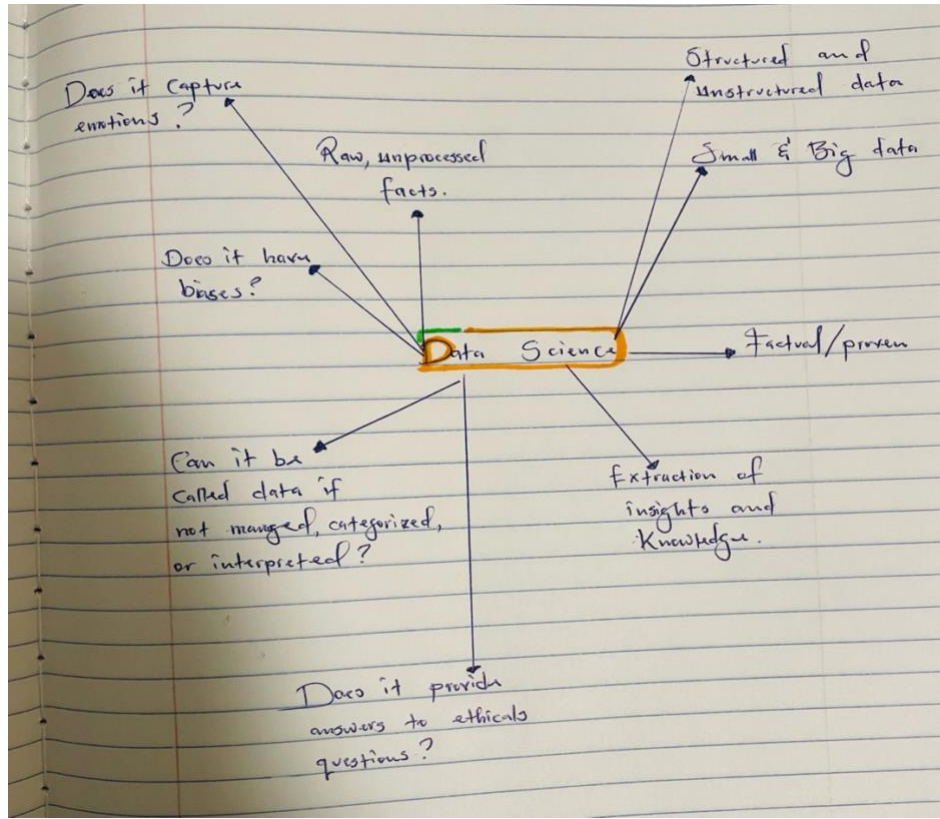 Does it capture
emotions?
Raw, unprocessed
facts.
Structured and
unstructured data
Small & Big data
Does it have
biases?
Data Science
Factual/proven
Can it be
called data if
not manged, categorized,
or interpreted?
Extraction of
insights and
Knowledge.
Does it provide
answers to ethicals
questions?